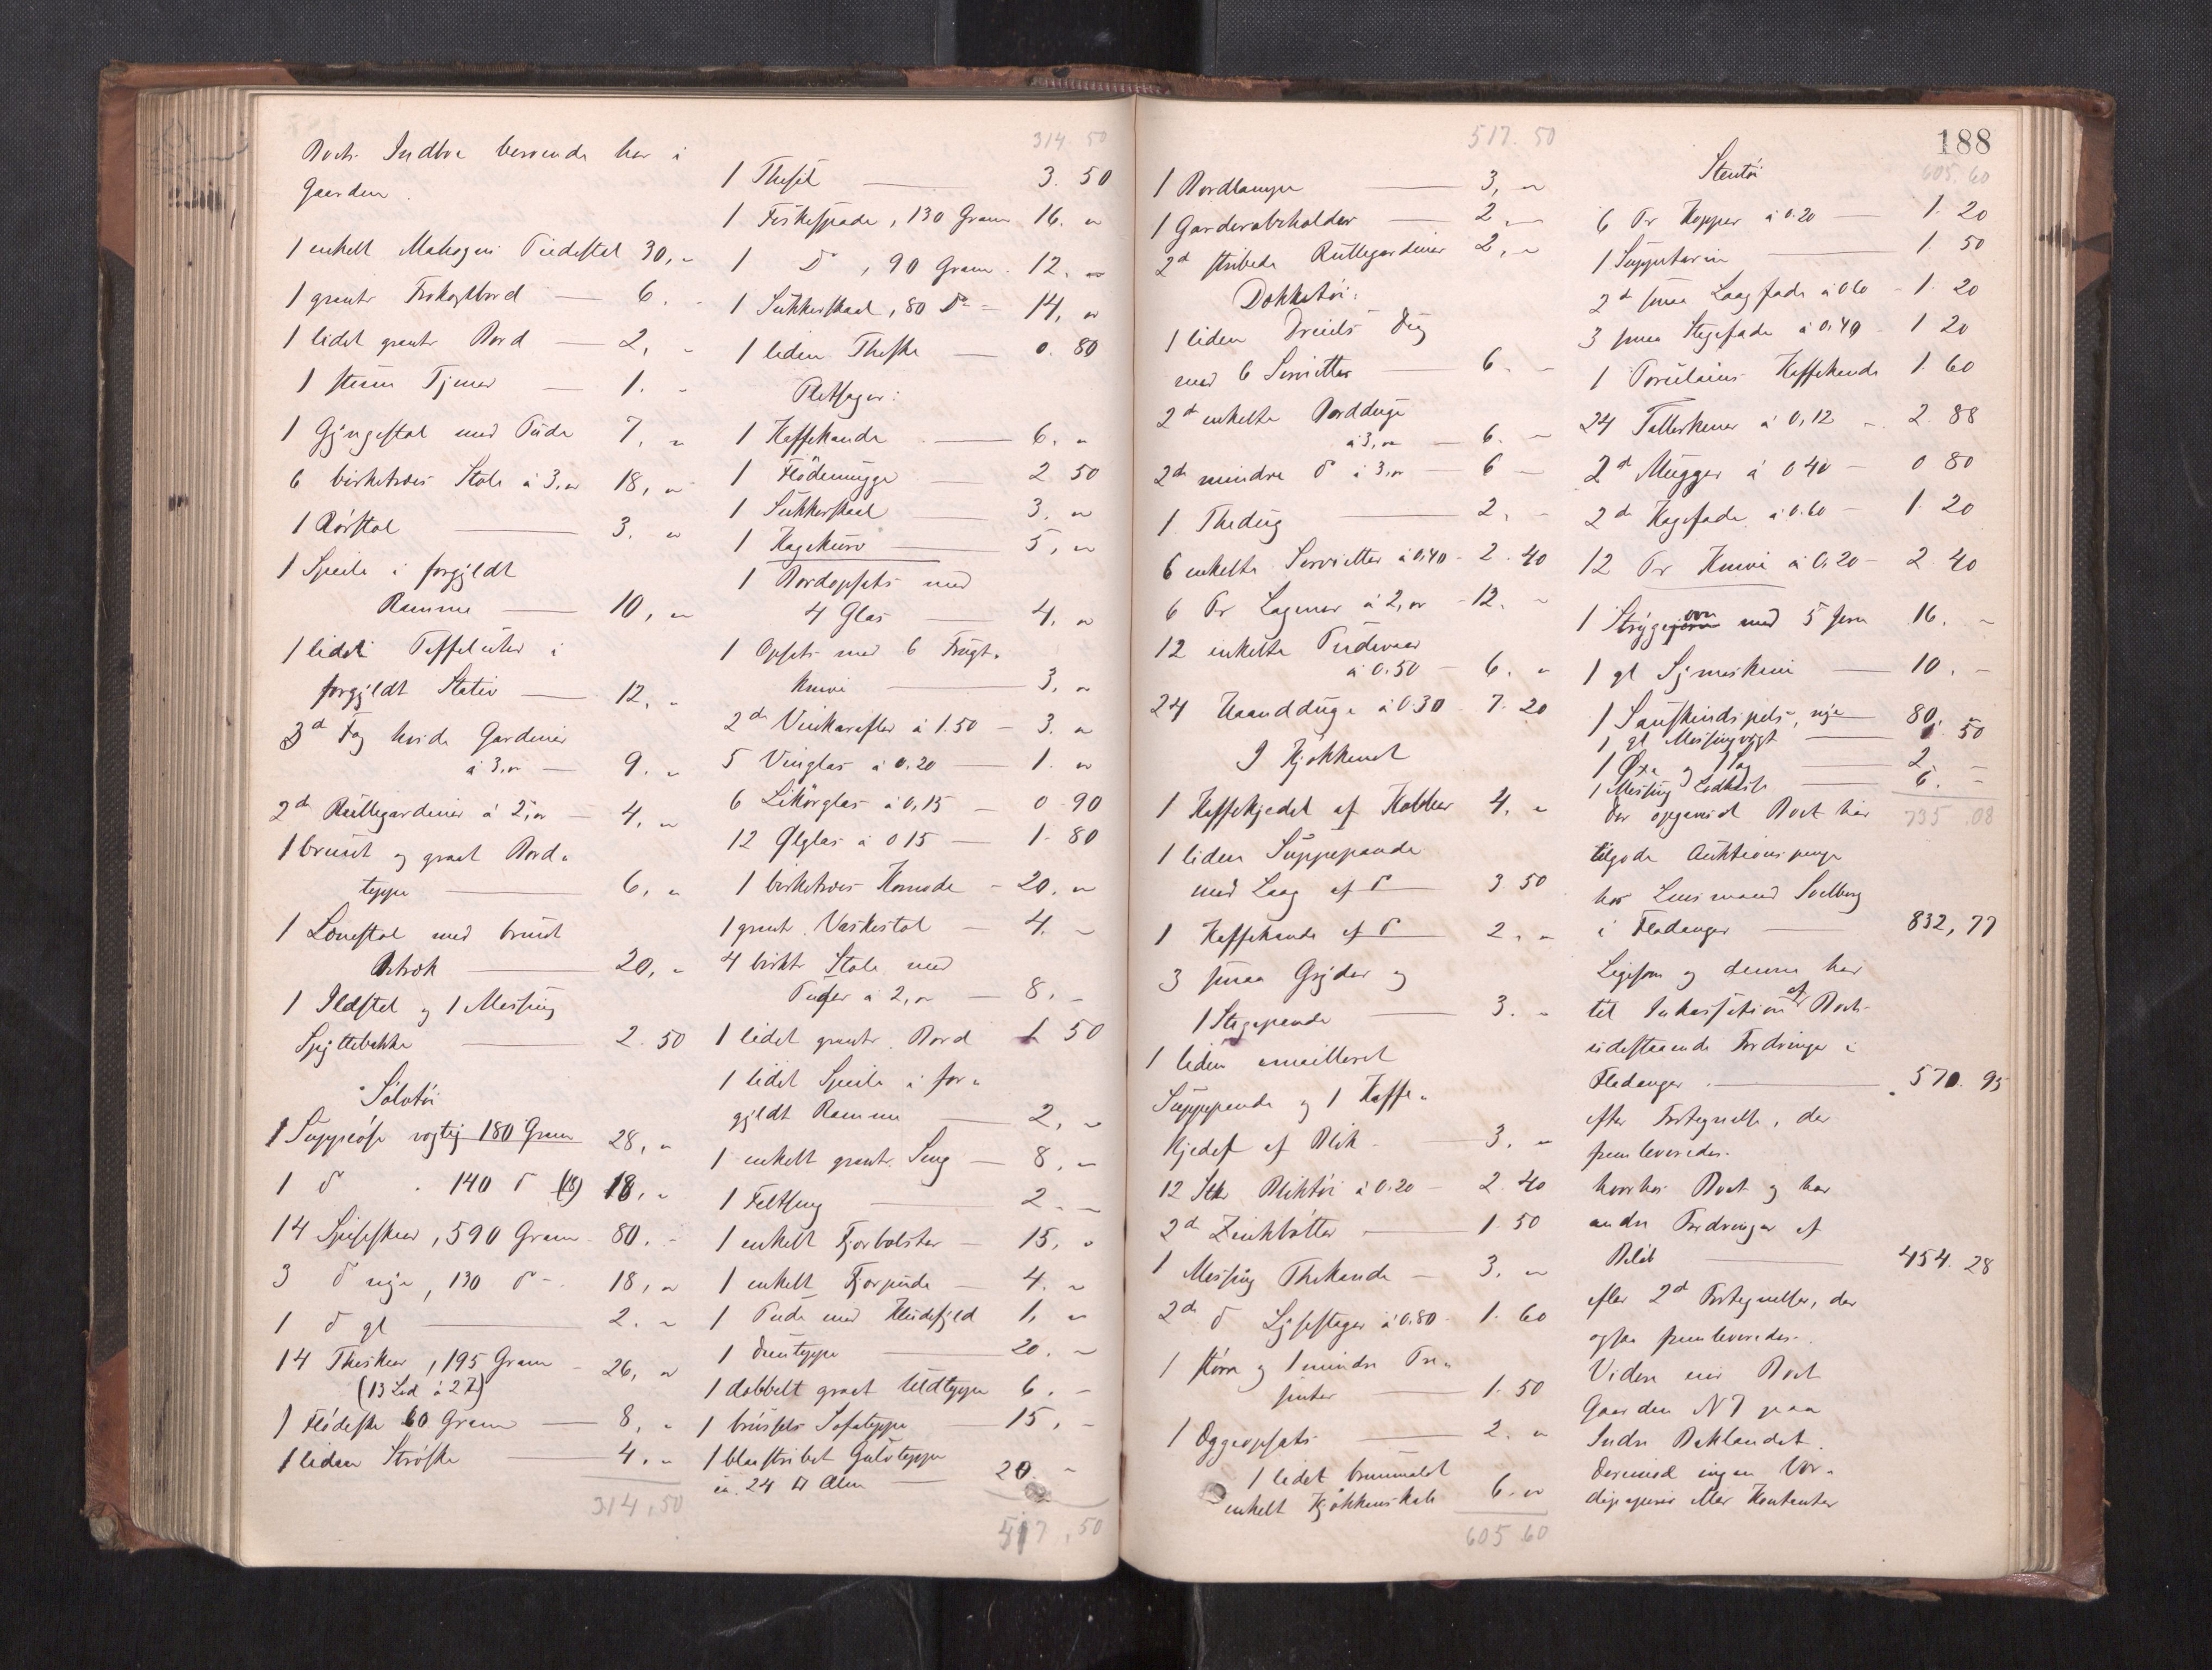 Boets Indbo beroende her i
Gaarden.
1 enkelt Mahogni Piedestal 30, "
1 grønt Bord — 6. "
1 lidet grønt Bord — 2, "
1 — 1. "
1 Gyngestol med Pude 7, "
6 birketræes Stole à 3, " 18, "
1 Rørstol — 3. "
1 Speile i forgyldt
Ramme — 10, "
1 lidet Taffeluhr i
forgyldt Stativ — 12, "
3de Fag hvide Gardiner
à 3, " — 9. "
2de Rullegardiner à 2, " — 4, "
1 brunt og graat Bord-
teppe — 6, "
1 Lænestol med brunt
Betræk — 20, "
1 Ildstel og 1 Messing
Spyttebakke — 2. 50
Sølvtøi
1 Suppeøse vægtig 180 Gram 28, "
1 do . 140 do (18) 18, "
14 Spiseskeer, 590 Gram - 80. -
3 do nye, 130 do -. 18, "
1 do gl — 2. "
14 Theskeer, 195 Gram - 26, "
(13 Lod à 2 )
1 Flødeske 60 Gram — 8, "
1 liden Strøske — 4. "
314,50
314.50
1 Thesil — 3. 50
1 Fiskespade, 130 Gram 16. "
1 Do, 90 Gram. 12. "
1 Sukkerskaal, 80 Do - 14, "
1 liden Theske — 0. 80
Pletsager:
1 Kaffekande — 6. "
1 Flödemugge — 2 50
1 Sukkerskaal — 3. "
1 Kagekurv — 5, "
1 Bordopsats med
4 Glas — 4, "
1 Opsats med 6 Frugt-
knive — 3. "
2de Vinkarafler à 1.50 — 3. "
5 Vinglas à 0.20 — 1. "
6 Likörglas à 0,15 — 0 90
12 Ølglas à 0 15 — 1. 80
1 birketræes Komode - 20. "
1 grønt. Vaskestol — 4. "
4 birktr Stole med
Puder à 2, " — 8. -
1 lidet grønt. Bord 1 50
1 lidet Speile i for-
gyldt Ramme — 2, "
1 enkelt grønt. Seng — 8, "
1 Feltseng — 2. "
1 enkelt Fjorbolster — 15, "
1 enkelt Fjorpude — 4. "
1 Pude med Hundefjeld 1, "
1 Dunteppe — 20. "
1 dobbelt graat Uldteppe 6. -
1 brüssels Sofateppe — 15, -
1 blaastribet Gulvteppe
ca. 24 □ Alen — 20. -
517,50
517.50
1 Bordlampe — 3, "
1 Garderobeholder — 2. "
2de stribede Rullegardiner 2, "
Dækketøi:
1 liden Dreiels Dug
med 6 Servietter — 6. -
2de enkelte Bordduge
à 3, " — 6. -
2de mindre do à 3, " — 6 -
1 Thedug — 2, -
6 enkelte Servietter à 0,40 - 2. 40
6 Pr Lagner à 2, " - 12. -
12 enkelte Pudevaar
à 0.50 — 6. "
24 Haandduge à 0.30 - 7. 20
I Kjøkkenet
1 Kaffekjedel af Kobber 4, "
1 liden Suppepande
med Laag af do — 3 50
1 Kaffekande af do 2, "
3 smaa Gryder og
1 Stegepande — 3. "
1 liden emailleret
Suppepande og 1 Kaffe-
kjedel af Blik — 3. "
12 Stkr Bliktøi à 0.20 - 2. 40
2de Zinkbøtter — 1. 50
1 Messing Thekande — 3. "
2de do Lysestager à 0.80 - 1. 60
1 større og 1 mindre
— 1. 50
1 Æggeopsats — 2. "
1 lidet brunmalet
enkelt Kjøkkenskab 6. "
605 60
188
Stentøi
605.60
6 Pr Kopper à 0.20 — 1. 20
1 Suppeterin — 1. 50
2de smaa Laagfade à 0.60 - 1. 20
3 smaa Stegefade à 0.40 - 1 20
1 Porcelains Kaffekande 1. 60
24 Tallerkener à 0,12 - 2 88
2de Mugger à 0 40 — 0 80
2de Kagefade à 0.60 — 1. 20
12 Pr Knive à 0,20 - 2. 40
1 Strygeovn med 5 Jern 16. -
1 gl Symaskine — 10. -
1 Saueskindspels, nye — 80. -
1 gl Messingvægt — 1. 50
1 Øxe og 1 Sag — 2 -
1 Messing — 6. -
Der opgaves at Boet har 735.08
tilgode Auktionspenge
hos Lensmand Svelberg
i Fladanger — 832,77
Ligesom og denne har
til Inkassation af Boets
udestaaende Fordringer i
Fladanger — 570. 95
efter Fortegnelse, der
fremleveredes.
hvorhos Boet og har
andre Fordringer af
Beløb — 454. 28
efter 2de Fortegnelser, der
ogsaa fremleveredes.
Videre eier Boet
Gaarden N 7 paa
Indre Baklandet.
Derimod ingen Vær-
dipapirer eller Kontanter